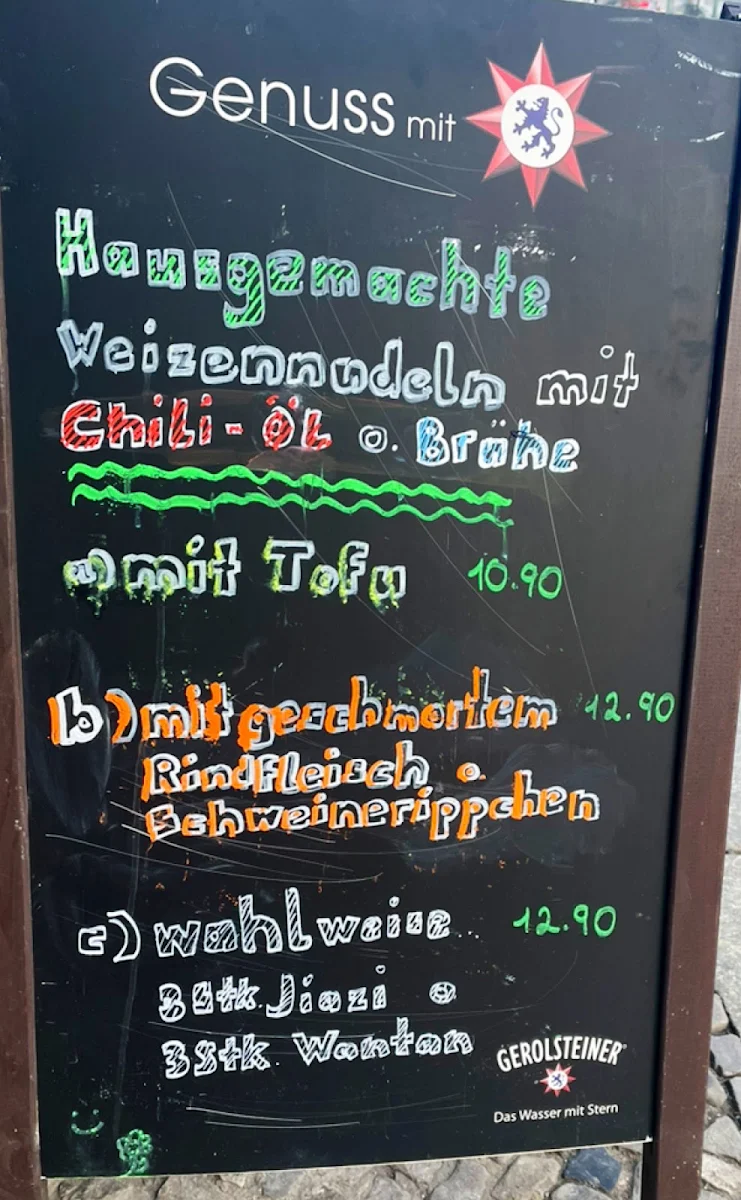 Genuss mit
Hausgemachte
Weizennudeln mit
Chili-Öl o. Brühe
a) mit Tofu 10.90
b) mit geschmortem 12.90
Rindfleisch o.
Schweinerippchen
c) wahlweise.. 12.90
3 Stk. Jiazi o
3 Stk. Wantan
GEROLSTEINER
Das Wasser mit Stern